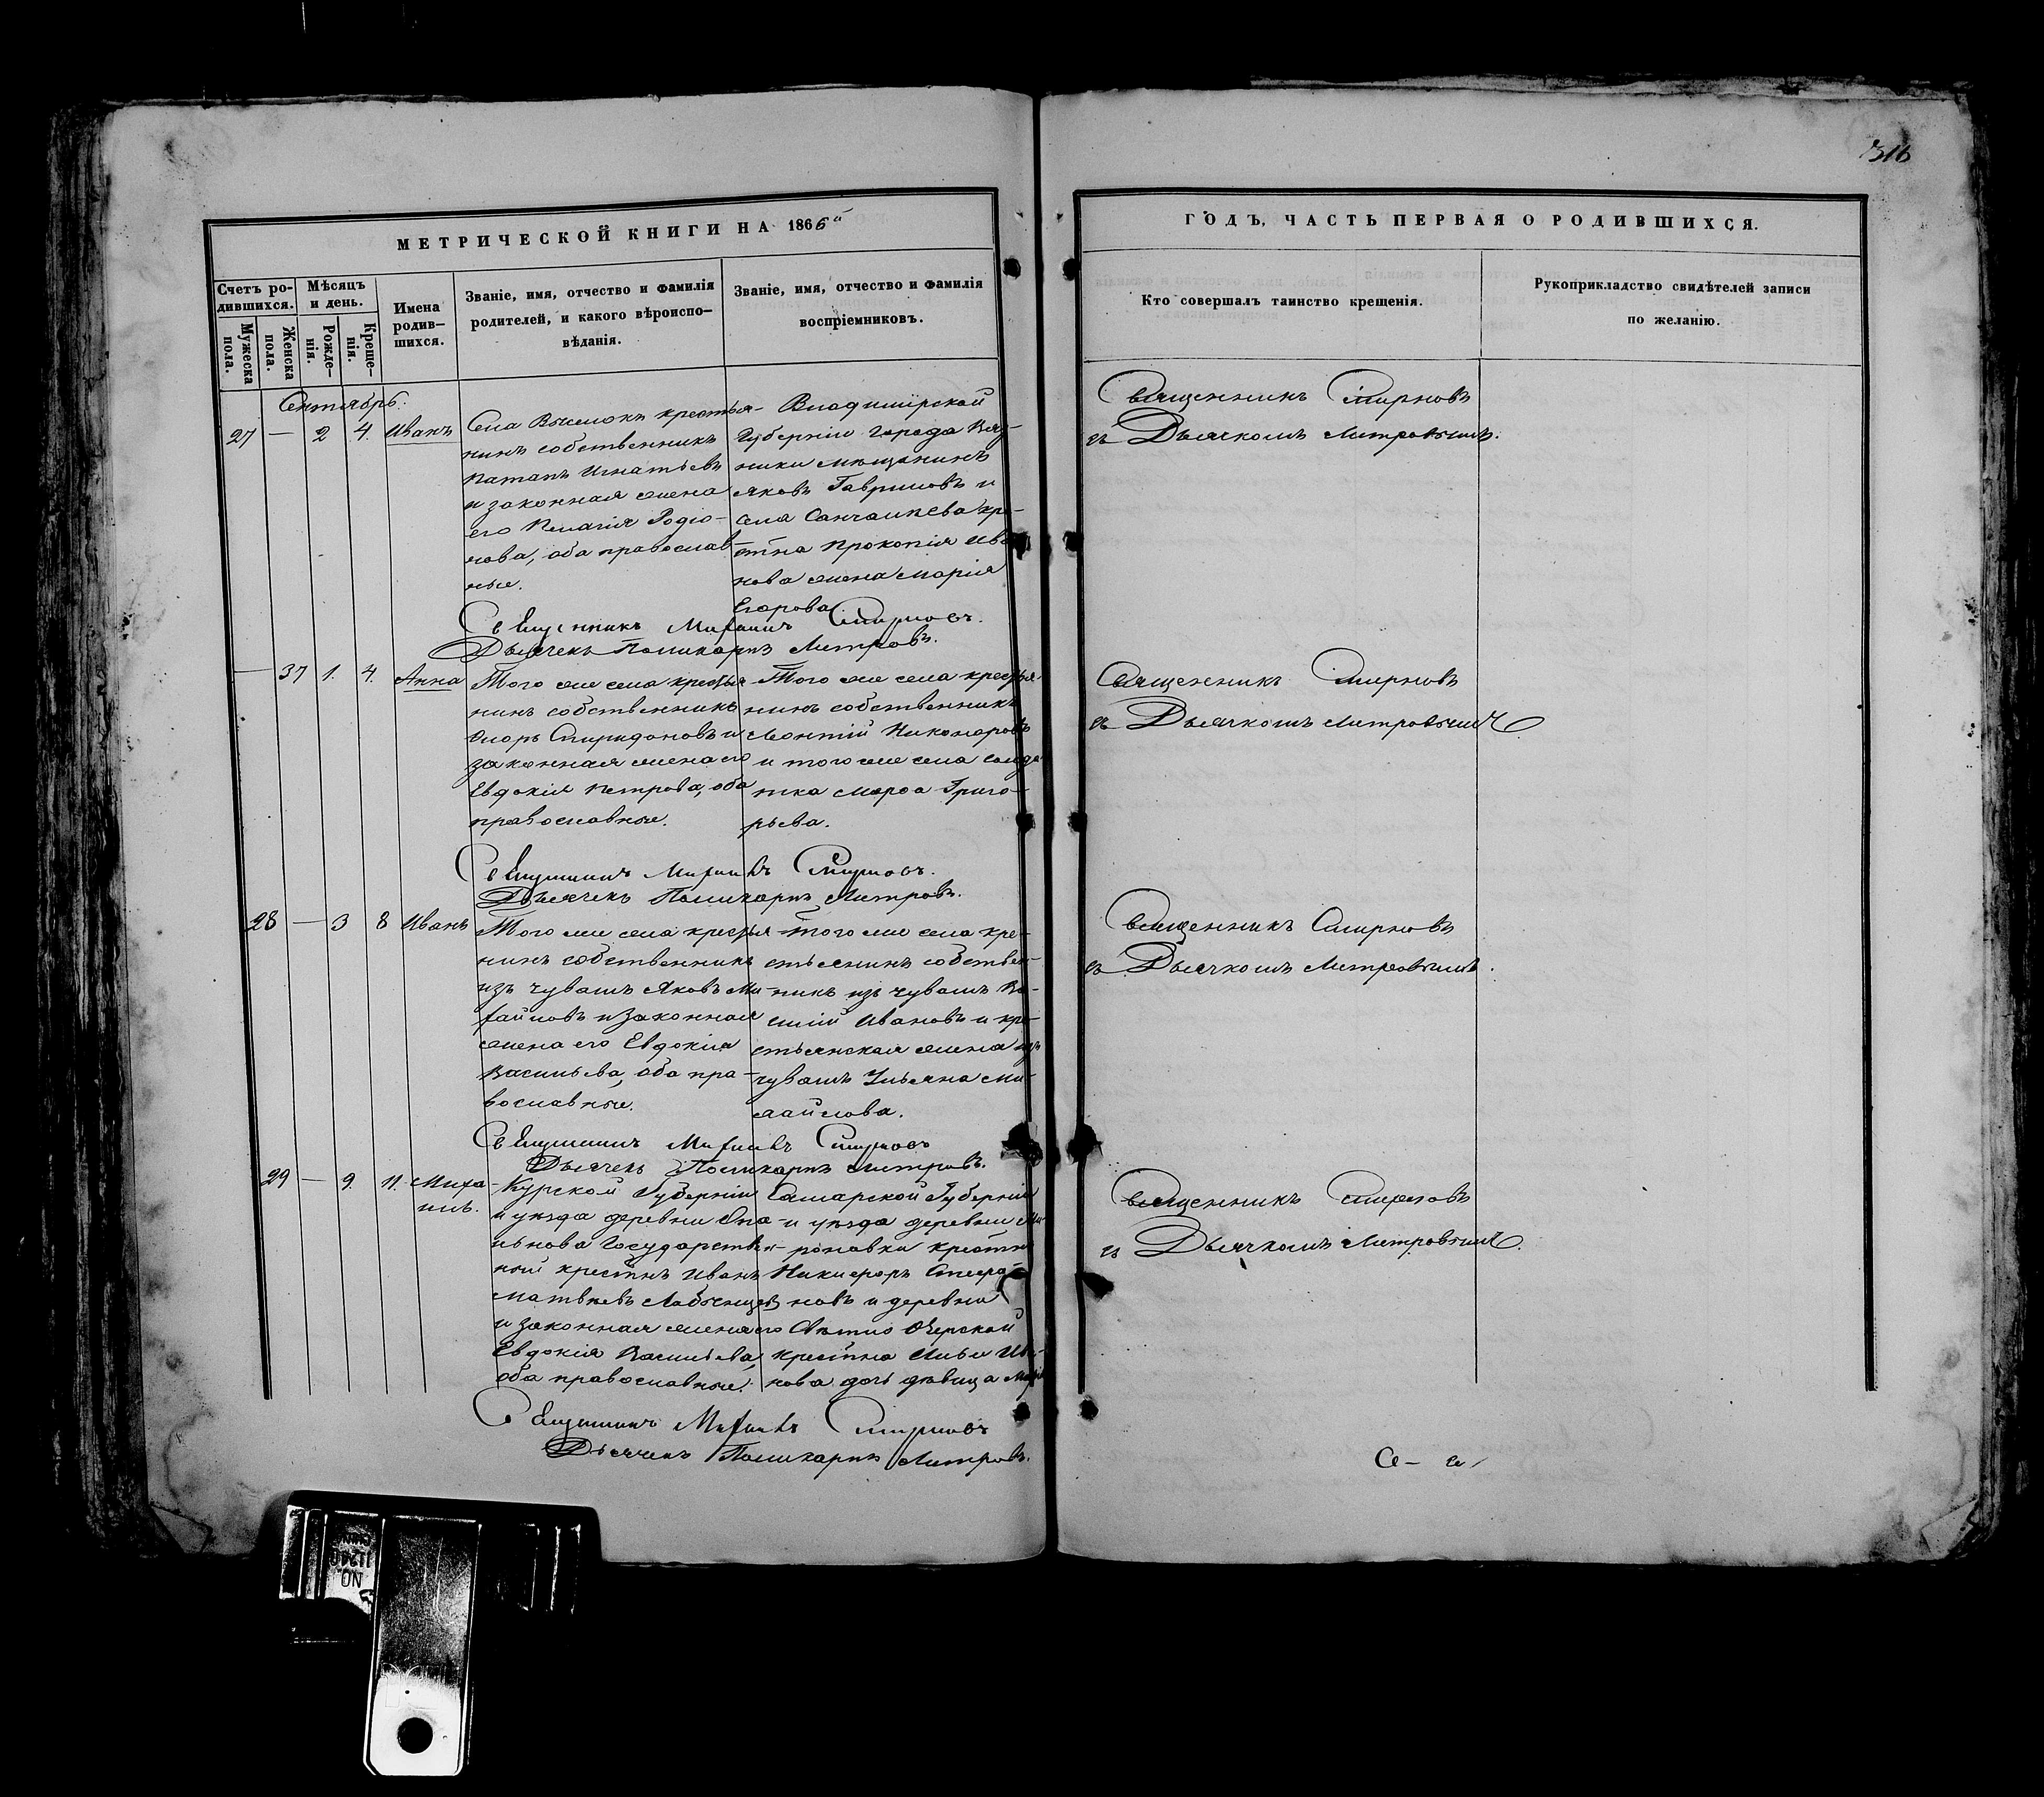 316
МЕТРИЧЕСКОЙ КНИГИ НА 1866й
ГОДЪ, ЧАСТЬ ПЕРВАЯ О РОДИВШИХСЯ.
Счетъ ро-
дившихся.
Мужеска
пола.
Женска
пола.
Мѣсяцъ
и день.
Рожде-
нія.
Креще-
нія.
Имена
родив-
шихся.
Званіе, имя, отчество и фамилія
родителей, и какого вѣроиспо-
вѣданія.
Званіе, имя, отчество и фамилія
воспріемниковъ.
Кто совершалъ таинство крещенія.
Рукоприкладство свидѣтелей записи
по желанію.
Сентябрь.
27 — 2 4. Иванъ
Села крестья-
нинъ собственникъ
Патапъ Игнатьевъ
и законная жена
его Пелагія Родіо-
нова, оба православ-
ные.
Владимірской
Губерніи города Вяз-
ники мѣщанинъ
Яковъ Гавриловъ и
села кре-
стна Прокопія Ива
нова жена Марія
Егорова.
Священникъ Смирновъ
съ Дьячкомъ Митровымъ.
Священникъ Михаилъ Смирновъ.
Дьячекъ Поликарпъ Митровъ.
— 37 1. 4. Анна
Того же села крестья
нинъ собственникъ
Спиридоновъ и
законная жена его
Евдокія Петрова, оба
православные.
Того же села крестья
нинъ собственникъ
Леонтій Никоноровъ
и того же села солда
тка Марѳа Григо-
рьева.
Священникъ Смирновъ
съ Дьячкомъ Митровымъ.
Священникъ Михаилъ Смирновъ.
Дьячекъ Поликарпъ Митровъ.
28 — 3 8 Иванъ
Того же села крестья
нинъ собственникъ
изъ чувашъ Яковъ Ми-
хайловъ и законная
жена его Евдокія
Васильева, оба пра-
вославные.
того же села кре-
стьянинъ собствен-
никъ изъ чувашъ Ва-
силій Ивановъ и кре-
стьянская жена изъ
чувашъ Ульяна Ми-
хайлова.
Священникъ Смирновъ
съ Дьячкомъ Митровымъ.
Священникъ Михаилъ Смирновъ
Дьячекъ Поликарпъ Митровъ.
29 — 9. 11. Миха-
илъ.
Курской Губерніи
и уѣзда деревни
Государствен-
ной крестнъ Иванъ
Матвѣевъ
и законная жена его
Евдокія Васильева,
оба православные.
Самарской Губерніи
и уѣзда деревни Ми-
роновки крестнъ
Никифоръ
новъ и деревни
Свѣтло Озерской
крестна Ильи Ива-
нова дочь дѣвица
Священникъ Смирновъ
съ Дьячкомъ Митровымъ.
Священникъ Михаилъ Смирновъ
Дьячекъ Поликарпъ Митровъ.